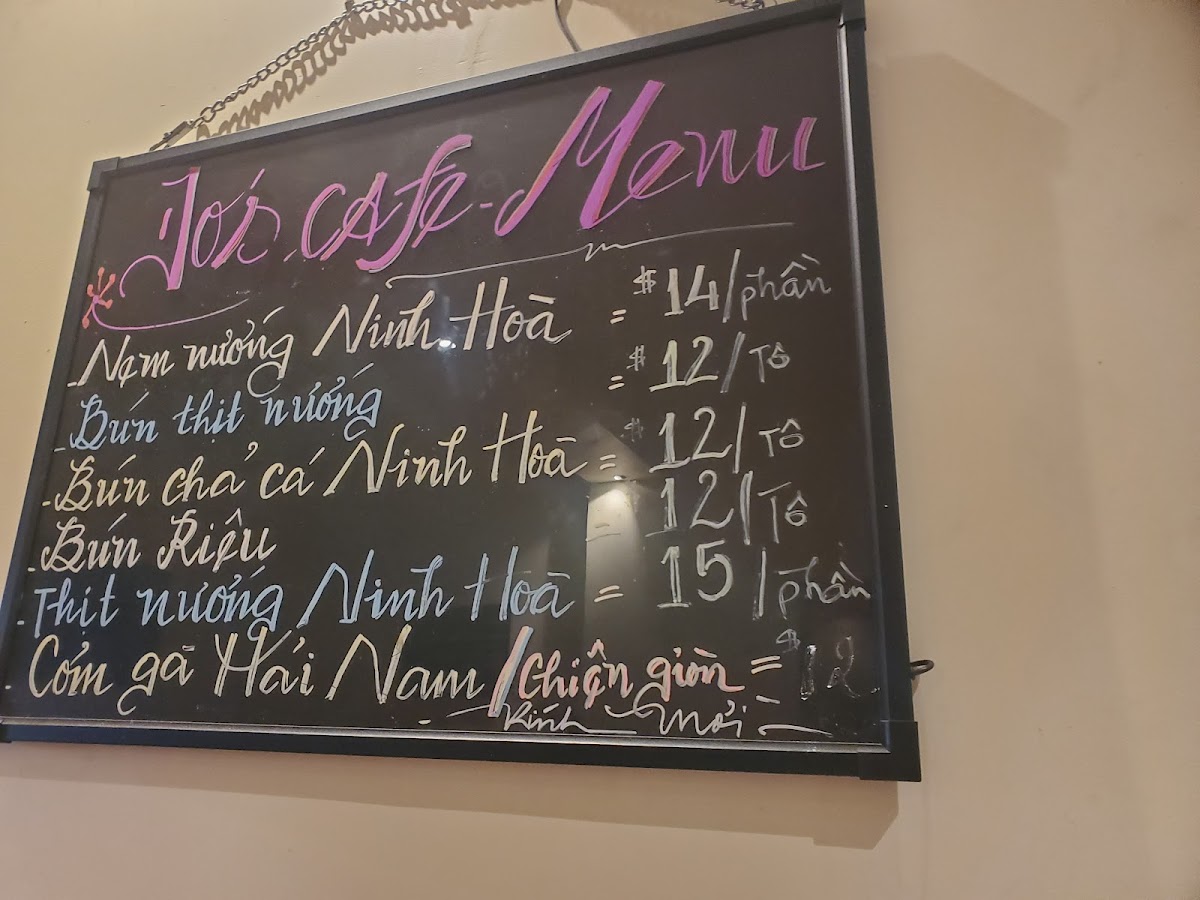 Jo's CAfe - Menu
- Nem nướng Ninh Hoà = $14/phần
- Bún thịt nướng = $12/Tô
- Bún chả cá Ninh Hoà = $12/Tô
- Bún Riêu = 12/Tô
- Thịt nướng Ninh Hoà = 15/phần
- Cơm gà Hải Nam/chiên giòn = $12
- Kính Mời -